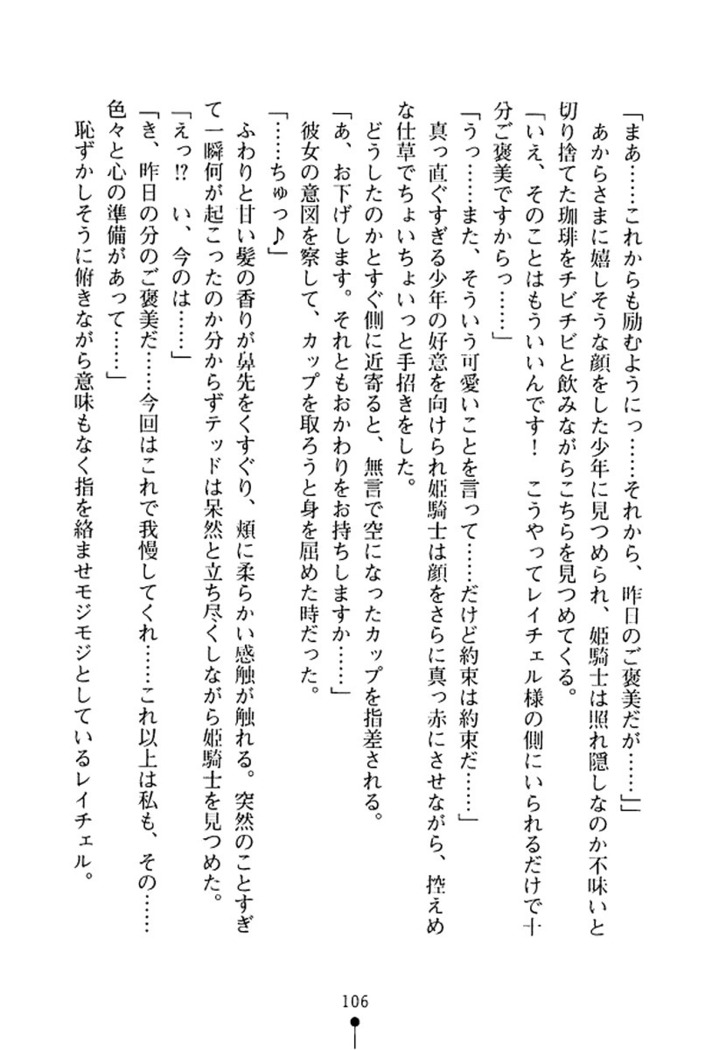 「まあ……これからも励むようにっ……それから、昨日のご褒美だが……」
　あからさまに嬉しそうな顔をした少年に見つめられ、姫騎士は照れ隠しなのか不味いと
切り捨てた珈琲をチビチビと飲みながらこちらを見つめてくる。
「いえ、そのことはもういいんです！　こうやってレイチェル様の側にいられるだけで十
分ご褒美ですからっ……」
「うっ……また、そういう可愛いことを言って……だけど約束は約束だ……」
　真っ直ぐすぎる少年の好意を向けられ姫騎士は顔をさらに真っ赤にさせながら、控えめ
な仕草でちょいちょいっと手招きをした。
　どうしたのかとすぐ側に近寄ると、無言で空になったカップを指差される。
「あ、お下げします。それともおかわりをお持ちしますか……」
　彼女の意図を察して、カップを取ろうと身を屈めた時だった。
「……ちゅっ♪」
　ふわりと甘い髪の香りが鼻先をくすぐり、頬に柔らかい感触が触れる。突然のことすぎ
て一瞬何が起こったのか分からずテッドは呆然と立ち尽くしながら姫騎士を見つめた。
「えっ!?　い、今のは……」
「き、昨日の分のご褒美だ……今回はこれで我慢してくれ……これ以上は私も、その……
色々と心の準備があって……」
　恥ずかしそうに俯きながら意味もなく指を絡ませモジモジとしているレイチェル。
106